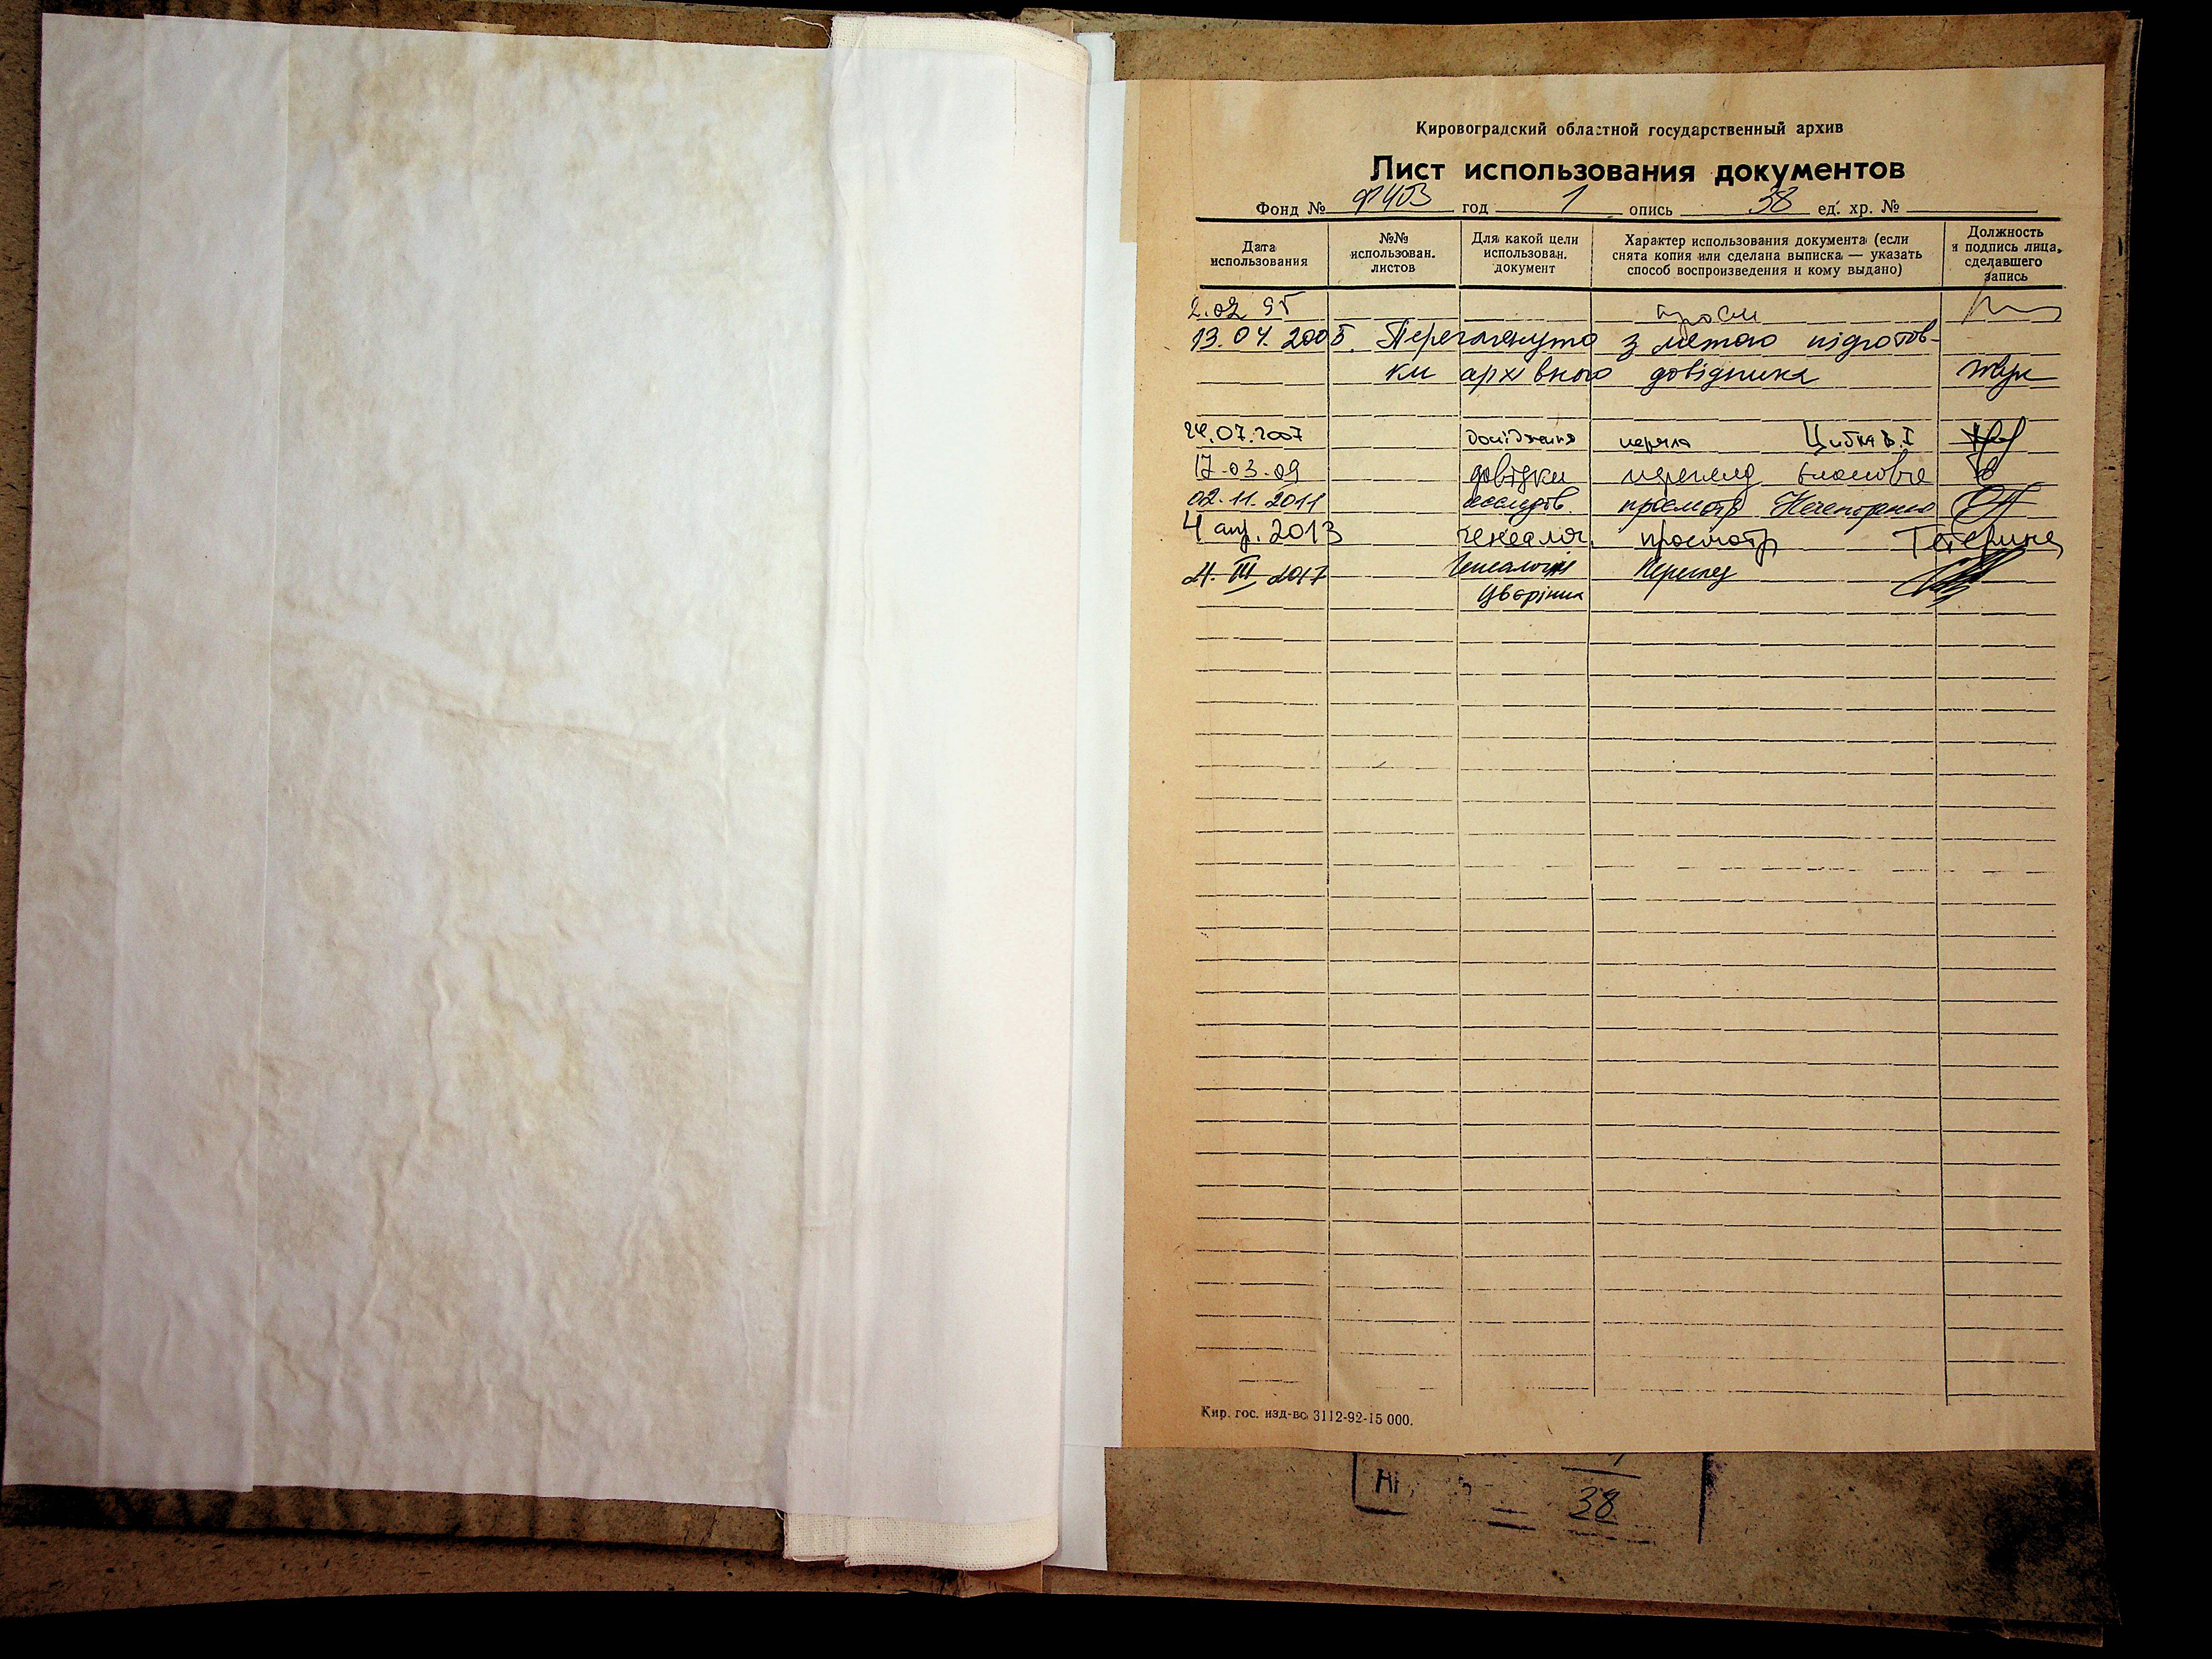 Кировоградский областной государственный архив
Лист использования документов
Фонд № Ф403 год 1 опись 38 ед. хр. №
Дата использования
№№ использован. листов
Для какой цели использован. документ
Характер использования документа (если снята копия или сделана выписка — указать способ воспроизведения и кому выдано)
Должность и подпись лица, сделавшего запись
2.02 95
13.04.2005. Переглянуто з метою підготов-
ки архівного довідника
24.07.2007 дослідження Цибка В.І
17-03-09 довідки перегляд
02.11.2011 исследов. просмотр
4 апр. 2013 генеалог. просмотр
21.III 2017 Генеалогія Перегляд
Кир. гос. изд-во 3112-92-15 000.
38